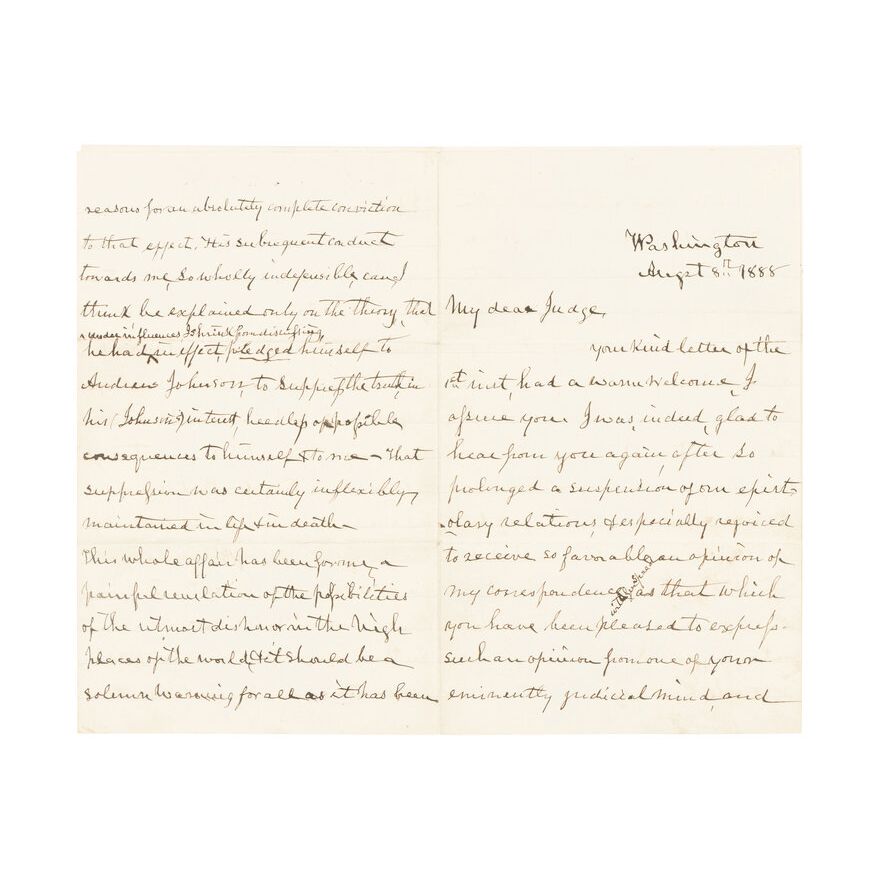 Washington
Augst 8th 1888
My dear Judge,
your kind letter of the
1st inst, had a warm welcome, I
assure you. I was, indeed, glad to
hear from you again, after so
prolonged a suspension of our epist-
olary relations, & especially rejoiced
to receive so favorable an opinion of
my correspondence, as that which
you have been pleased to express -
such an opinion from one of your
eminently judicial mind, and
reasons for an absolutely complete conviction
to that effect. His subsequent conduct
towards me, so wholly indefensible, can, I
think be explained only on the theory, that
under influences I shrink from discussing,
he had, in effect, pledged himself to
Andrew Johnson, to suppress the truth, in
his (Johnson's) interest, heedless of possible
consequences to himself & to me - That
suppression was certainly inflexibly
maintained in life & in death -
This whole affair has been for me, a
painful revelation of the possibilities
of the utmost dishonor in the high
places of the world, & it should be a
solemn warning for all as it has been